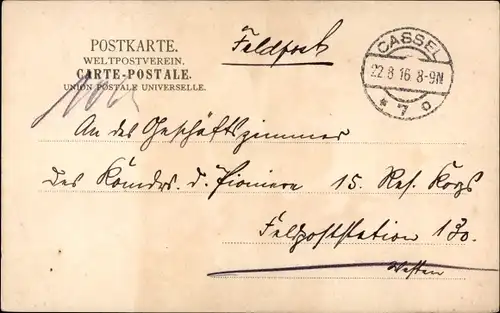 POSTKARTE.
WELTPOSTVEREIN.
CARTE-POSTALE.
UNION POSTALE UNIVERSELLE.
Feldpost
CASSEL
22.8.16. 8-9N
* 7 o
An das Geschäftszimmer
des Komdrs. d. Pioniere 15. Res. Korps
Feldpoststation 130.
Westen